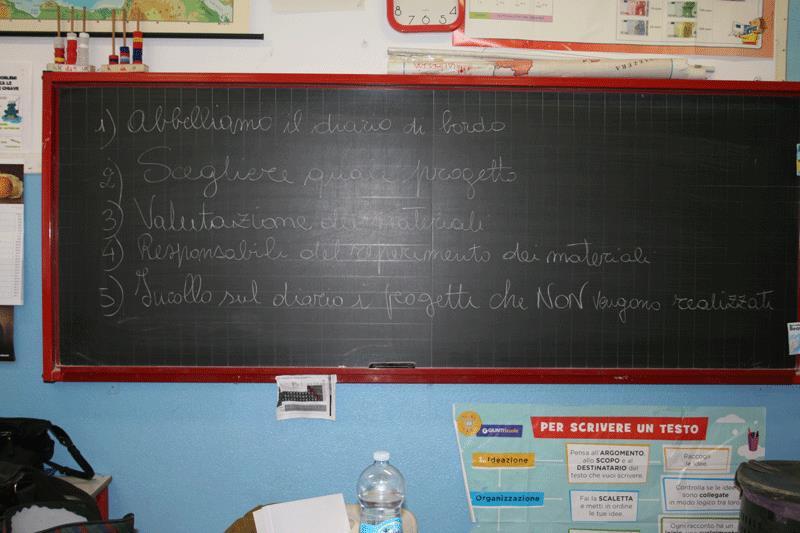 8 7 6 5 4
1) Abbelliamo il diario di bordo
2) Scegliere quale progetto
3) Valutazione dei materiali
4) Responsabili del reperimento dei materiali
5) Incollo sul diario i progetti che NON vengono realizzati
GIUNTI Scuola
PER SCRIVERE UN TESTO
1. Ideazione
Pensa all'ARGOMENTO,
allo SCOPO e al
DESTINATARIO del
testo che vuoi scrivere.
Raccogli
le idee.
Organizzazione
Fai la SCALETTA
e metti in ordine
le tue idee.
Controlla se le idee
sono collegate
in modo logico tra loro.
Ogni racconto ha un